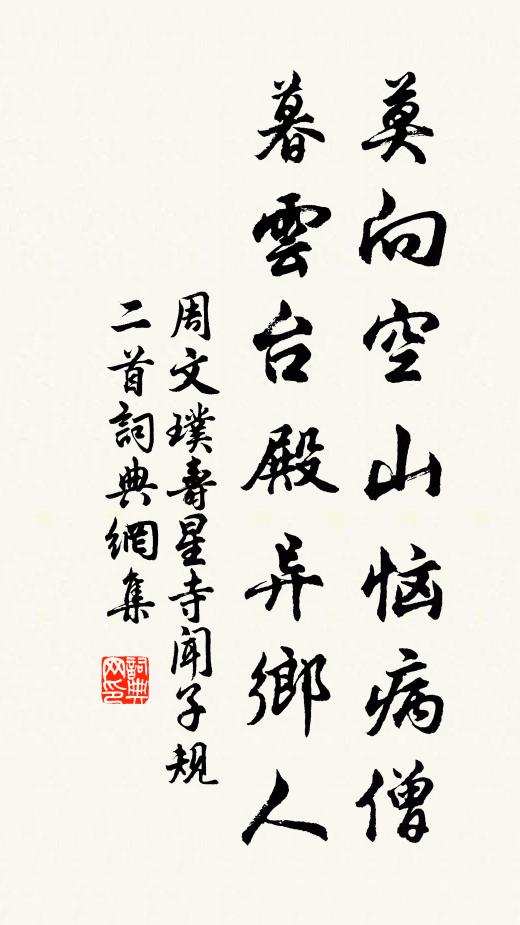 莫向空山恼病僧
暮雲台殿异鄉人
周文璞壽星寺聞子规
二首詞典網集
詞典网印